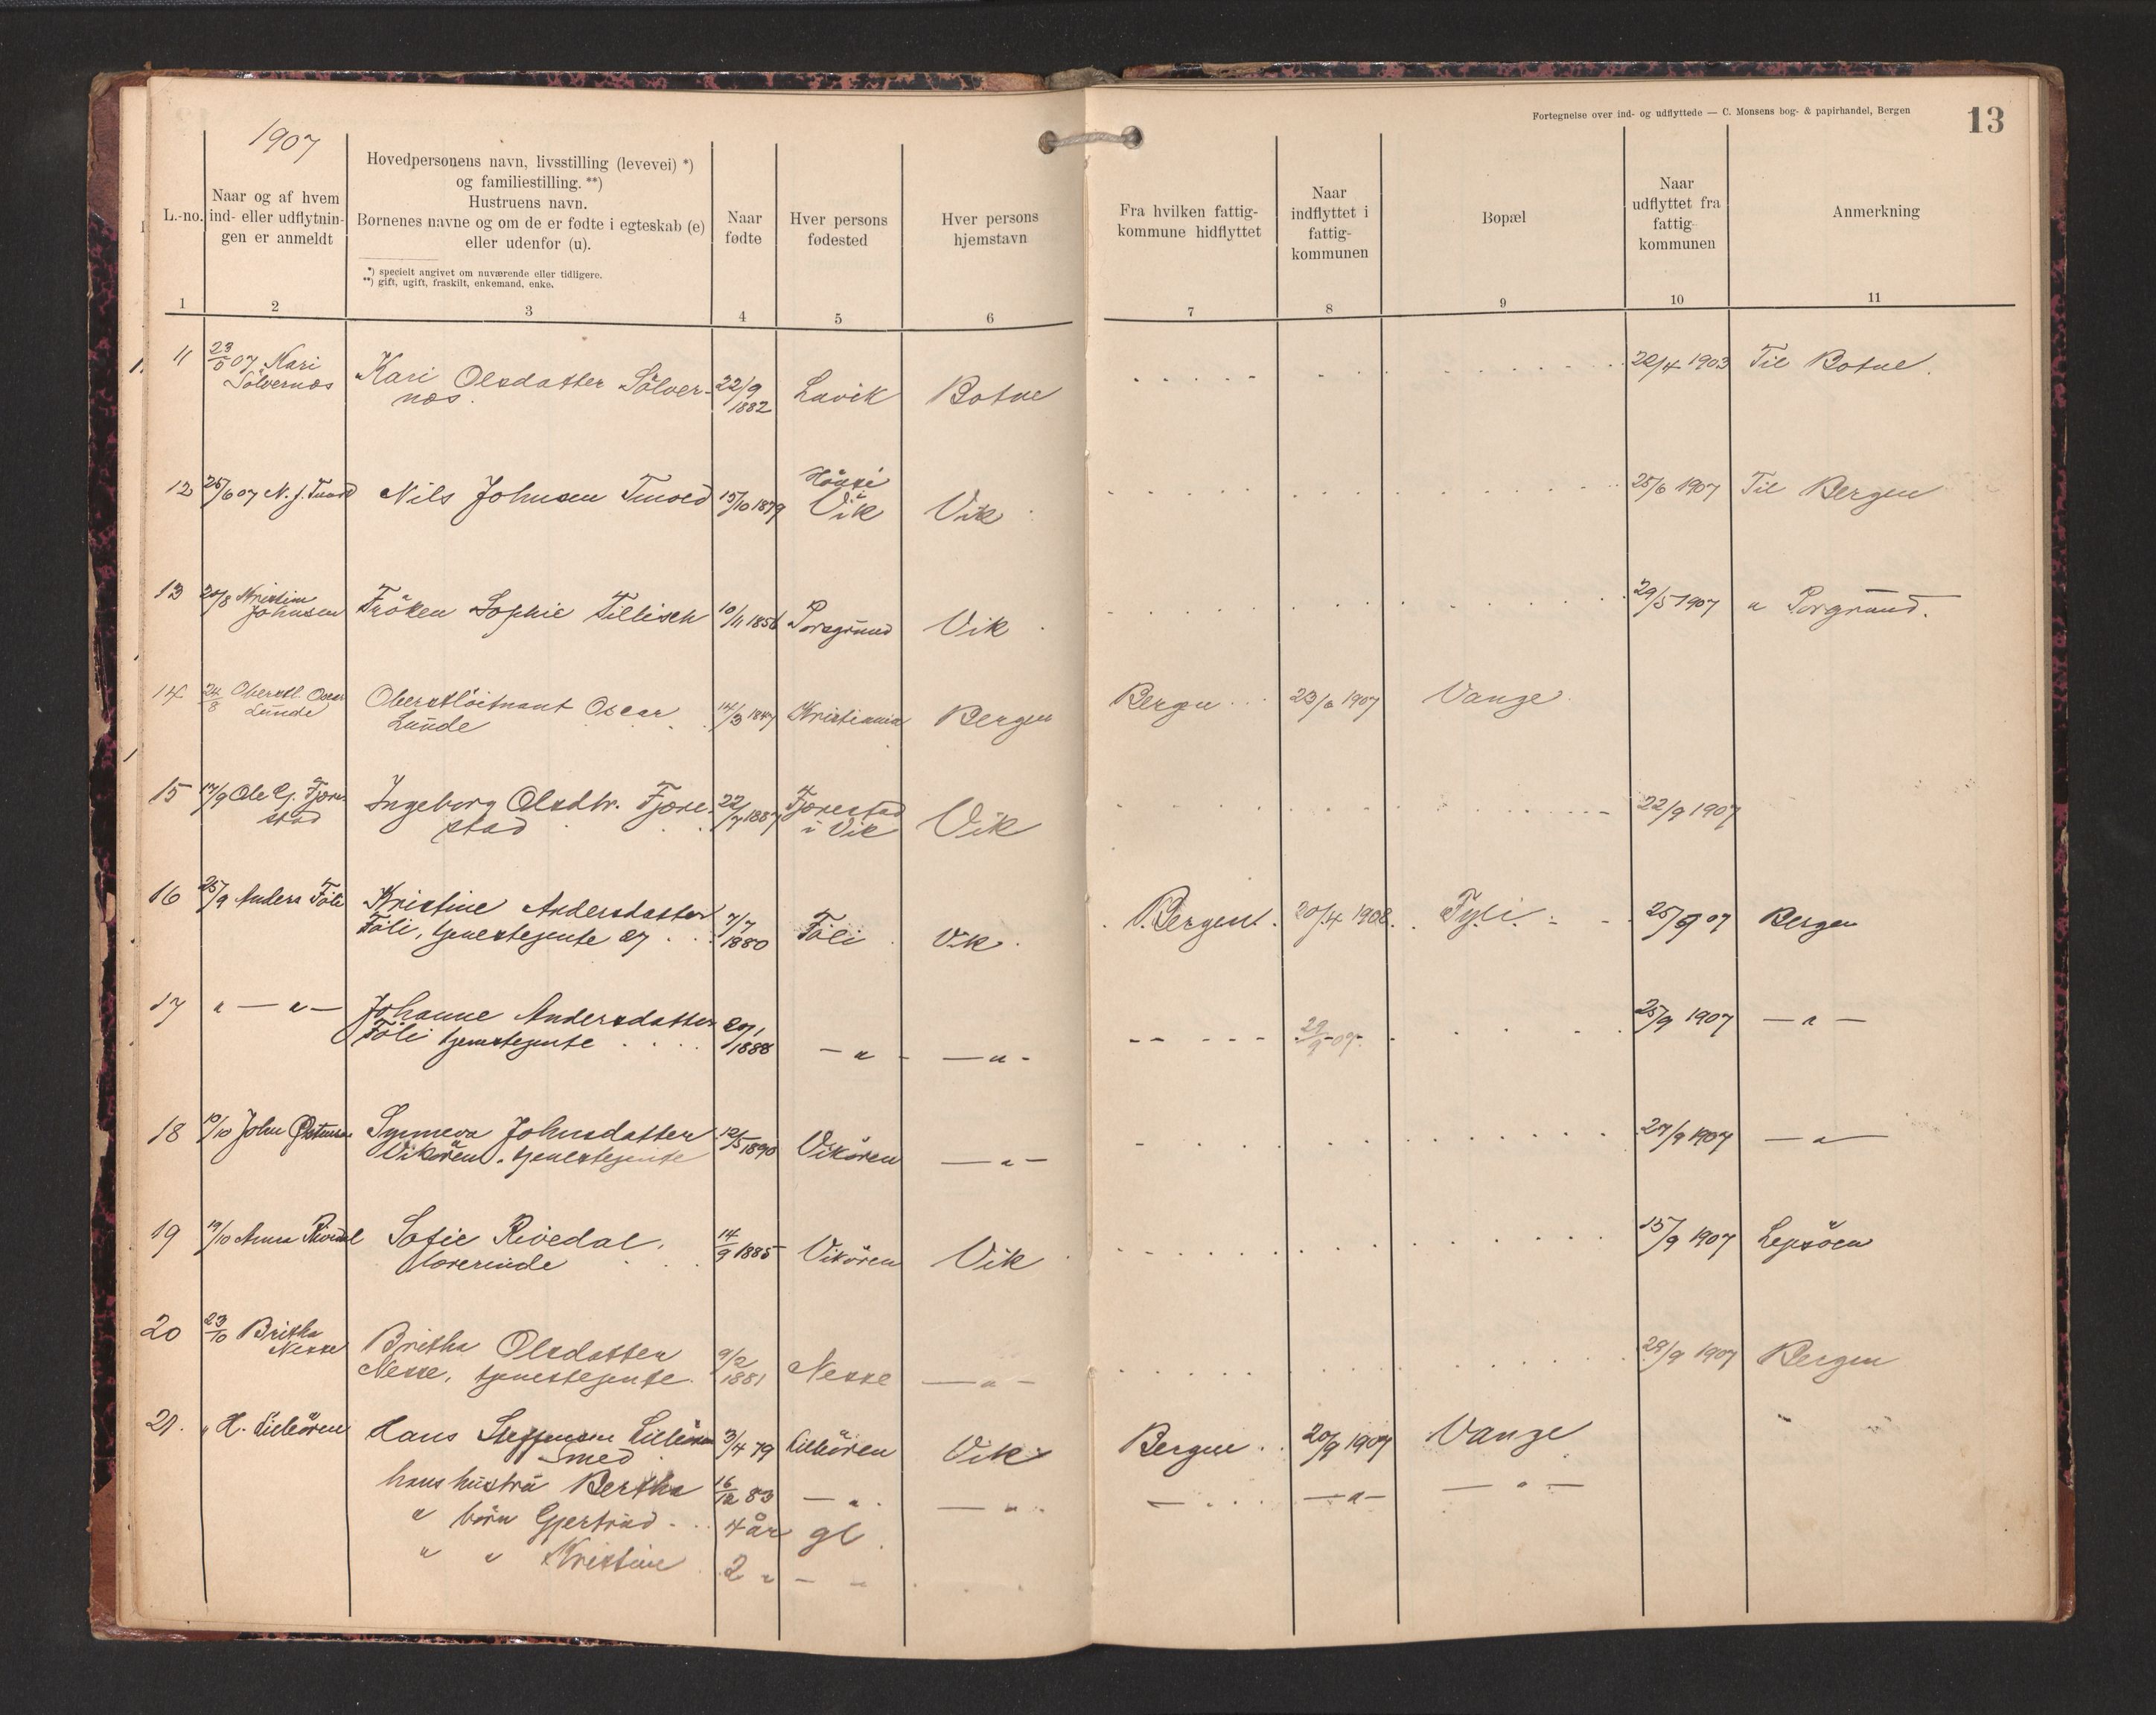 Fortegnelse over ind- og udflyttede — C. Monsens bog- & papirhandel, Bergen
13
1907
L.-no.
Naar og af hvem
ind- eller udflytnin-
gen er anmeldt
Hovedpersonens navn, livsstilling (levevei) *)
og familiestilling. **)
Hustruens navn.
Børnenes navne og om de er fødte i egteskab (e)
eller udenfor (u).
*) specielt angivet om nuværende eller tidligere.
**) gift, ugift, fraskilt, enkemand, enke.
Naar
fødte
Hver persons
fødested
Hver persons
hjemstavn
Fra hvilken fattig-
kommune hidflyttet
Naar
indflyttet i
fattig-
kommunen
Bopæl
Naar
udflyttet fra
fattig-
kommunen
Anmerkning
1 2 3 4 5 6 7 8 9 10 11
11 23/5 07 Kari Kari Olsdatter Sölver- 22/9 Lavik Botne 22/4 1903 Til Botne.
Sölvernæs næs. 1882
12 25/6 07 N. J. Nils Johnsen 15/10 1879 Vik Vik 25/6 1907 Til Bergen
13 20/8 Kristine Fröken Sophie Tillisch 10/11 1856 Porsgrund Vik 29/5 1907 " Porgrund.
Johnsen
14 24/8 Oberstl. Oscar Oberstlöitnant Oscar 14/3 1847 Kristiania Bergen Bergen 23/6 1907 Vange
Lunde Lunde
15 17/9 Ole G. Fjære- Ingeborg Olsdtr. Fjære- 22/7 1887 Fjærestad Vik 22/9 1907
stad stad i Vik
16 25/9 Anders Föli Kristine Andersdatter 7/7 Föli Vik Bergen 20/4 1908 Fyli 25/9 07 Bergen
Föli, tjenestejente 1880
17 " — " — Johanne Andersdatter 1888 — " — — " — 22/9 09 25/9 1907 — " —
Föli tjenestejente
18 10/10 John Synneva Johnsdatter 12/5 1890 Vikören — " — 27/9 1907 — " —
Vikören. tjenestejente
19 19/10 Anna Rivedal Sofie Rivedal, 14/9 1885 Vikören Vik 15/9 1907 Lepsöen
lærerinde
20 23/10 Britha Britha Olsdatter 9/2 Nesse — " — 28/9 1907 Bergen
Nesse Nesse, tjenestejente. 1881
21. " H. Lilleören Hans Steffensen Lilleören 3/4 79 Lilleören Vik Bergen 20/9 1907 Vange
smed
hans hustru Bertha 16/12 83 — " — — " — — — " — — " —
" börn Gjertrud 4 år gl.
" " Kristine 2 " —